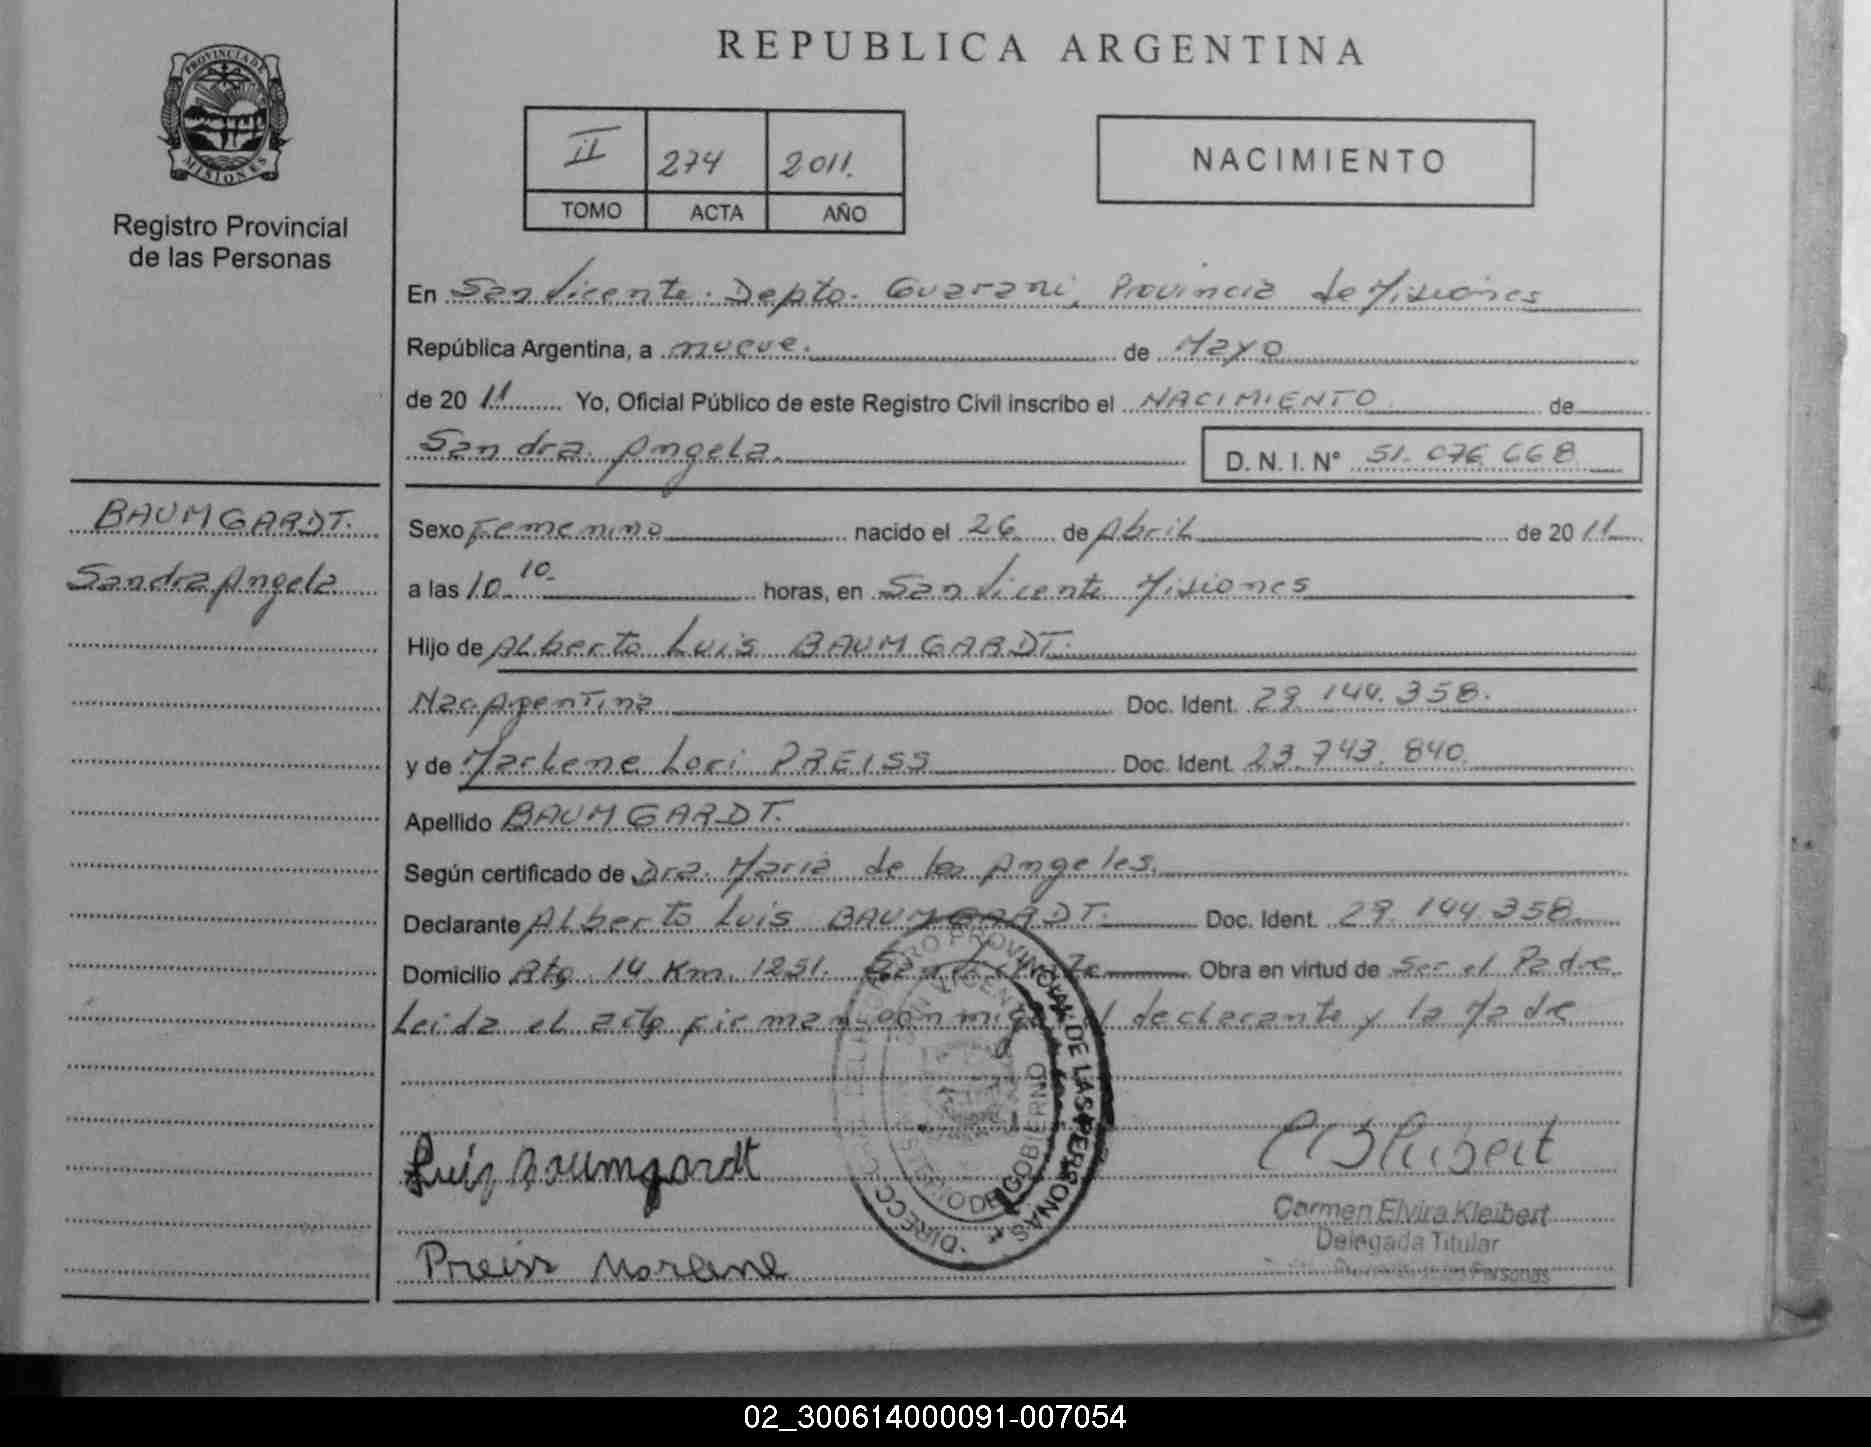 REPUBLICA ARGENTINA
PROVINCIA DE
MISIONES
Registro Provincial
de las Personas
II 274 2011.
TOMO ACTA AÑO
NACIMIENTO
En San Vicente. Depto. Guarani, Provincia de Misiones
República Argentina, a nueve. de Mayo
de 2011 Yo, Oficial Público de este Registro Civil inscribo el NACIMIENTO de
Sandra Angela. D. N. I. N° 51.076.668
BAUMGARDT.
Sandra Angela
Sexo Femenino nacido el 26 de Abril de 2011
a las 10 10 horas, en San Vicente Misiones
Hijo de Alberto Luis BAUMGARDT.
Nac. Agentina Doc. Ident. 29.144.358.
y de Marlene Lori PREISS Doc. Ident. 23.743.840
Apellido BAUMGARDT.
Según certificado de Dra. Maria de los Angeles.
Declarante Alberto Luis BAUMGARDT. Doc. Ident. 29.144.358
Domicilio Rta. 14 Km. 1251. San Vicente Obra en virtud de Ser el Padre
Leida el acta firman conmigo el declarante y la Madre
Luiz Baumgardt
Preiss Marlene
DE LAS PERSONAS
DE GOBIERNO
Carmen Elvira Kleibert
Delegada Titular
Personas
02_300614000091-007054